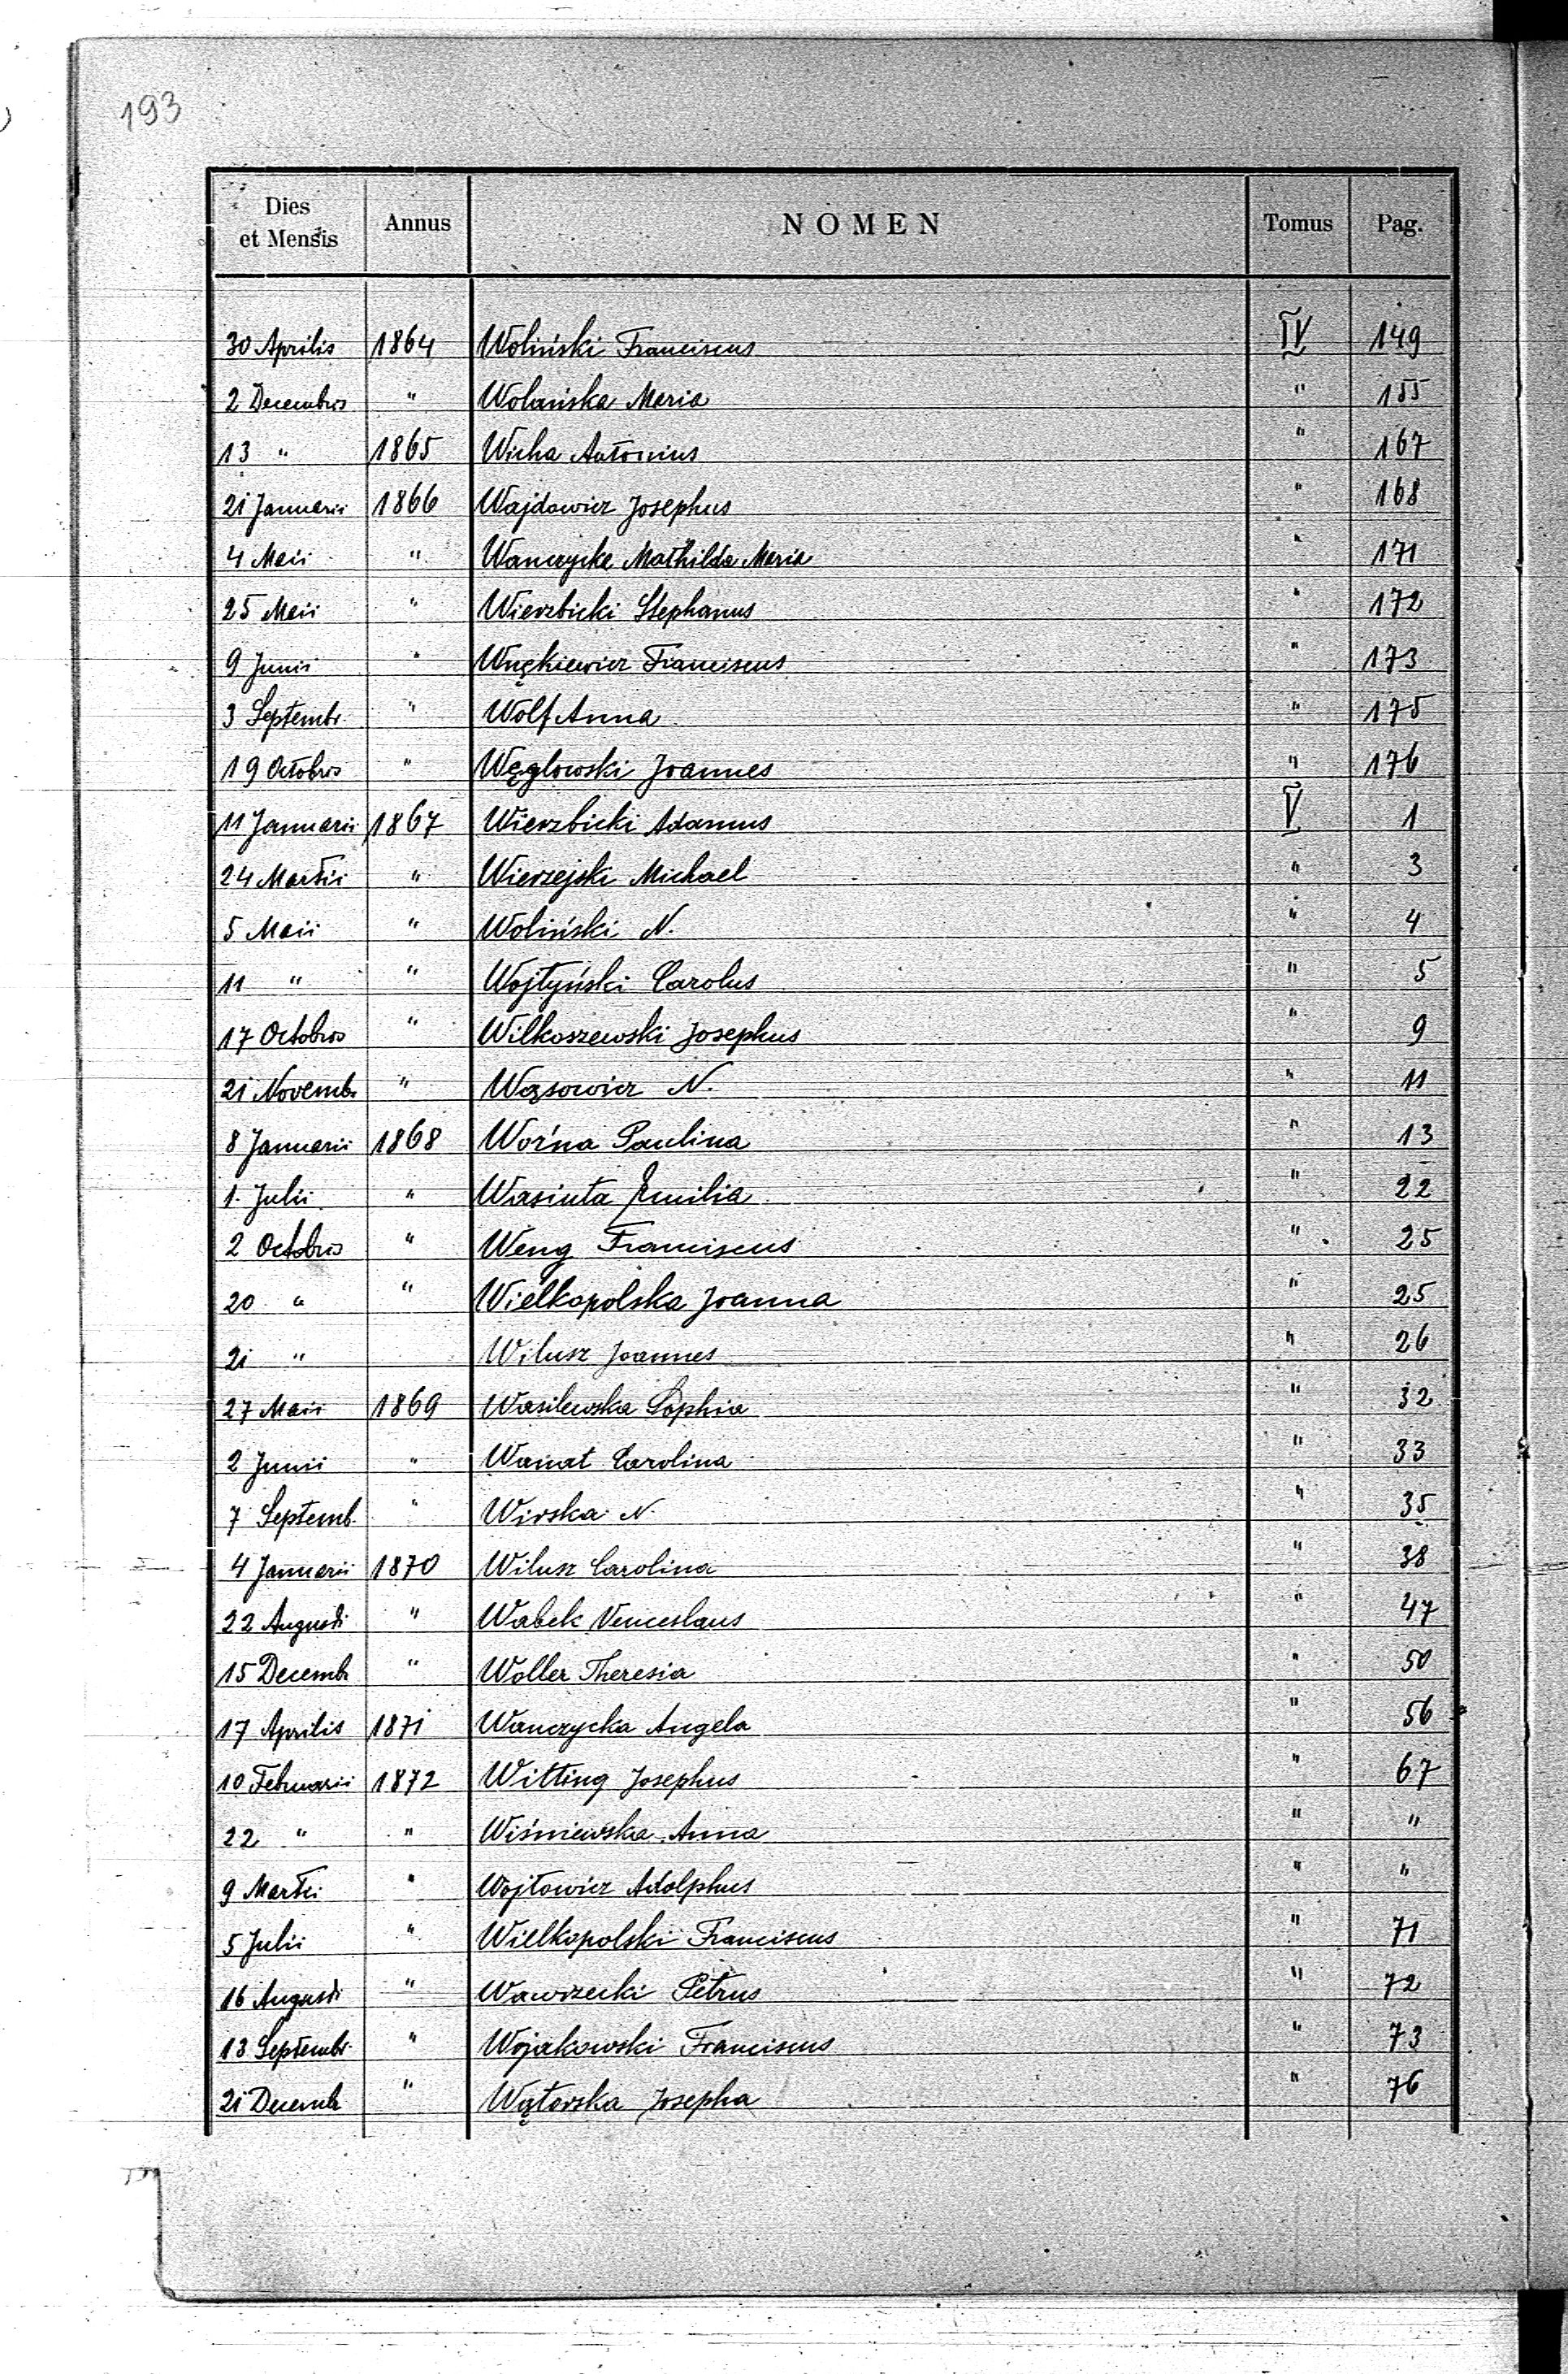 193
Dies et Mensis Annus NOMEN Tomus Pag.
30 Aprilis 1864 Woliński Franciscus IV 149
2 Decembris " Wolańska Maria " 155
13 " 1865 Wicha Antonius " 167
21 Januarii 1866 Wajdowicz Josephus " 168
4 Maii " Wanczycka Mathilda Maria " 171
25 Maii " Wierzbicki Stephanus " 172
9 Junii " Wnękiewicz Franciscus " 173
3 Septembr " Wolf Anna " 175
19 Octobris " Węglowski Joannes " 176
11 Januarii 1867 Wierzbicki Adamus V 1
24 Martii " Wierzejski Michael " 3
5 Maii " Woliński N. " 4
11 " " Wojtyński Carolus " 5
17 Octobris " Wilkoszewski Josephus " 9
21 Novemb. " Wąsowicz N. " 11
8 Januarii 1868 Woźna Paulina " 13
1. Julii " Wasiuta Emilia " 22
2 Octobris " Weng Franciscus " 25
20 " " Wielkopolska Joanna " 25
21 " Wilusz Joannes " 26
27 Maii 1869 Wasilewska Sophia " 32
2 Junii " Wanat Carolina " 33
7 Septemb. " Wirska N. " 35
4 Januarii 1870 Wilusz Carolina " 38
22 Augusti " Wabek Venceslaus " 47
15 Decemb " Woller Theresia " 50
17 Aprilis 1871 Wanczycka Angela " 56
10 Februarii 1872 Witting Josephus " 67
22 " " Wiśniewska Anna " "
9 Martii " Wojtowicz Adolphus " "
5 Julii " Wielkopolski Franciscus " 71
16 Augusti " Wawrzecki Petrus " 72
13 Septembr. " Wojakowski Franciscus " 73
21 Decemb " Wątorska Josepha " 76